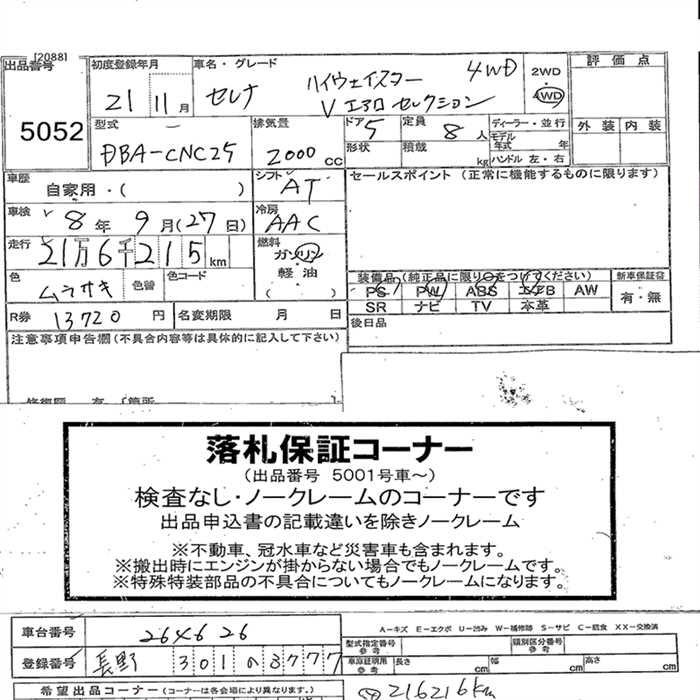 [2088]
出品番号 初度登録年月 車名・グレード 評価点
5052
21 11月 セレナ ハイウェイスター 4WD
Vエアロセレクション
2WD
4WD
外装 内装
型式 排気量 ドア 定員 ディーラー・並行
DBA-CNC25 2000cc 5 8人 モデル年式 年
形状 積載 kg ハンドル 左・右
車歴 自家用・( ) シフト AT セールスポイント(正常に機能するものに限ります)
車検 8年 9月(27日) 冷房 AAC
走行 21万6千215km 燃料 ガソリン
軽油
( )
色 ムラサキ 色替 色コード
装備品(純正品に限り○をつけてください) 新車保証書
PS PW ABS エアB AW 有・無
SR ナビ TV 本革
R券 13720円 名変期限 月 日 後日品
注意事項申告欄(不具合内容等は具体的に記入して下さい)
落札保証コーナー
(出品番号 5001号車～)
検査なし・ノークレームのコーナーです
出品申込書の記載違いを除きノークレーム
※不動車、冠水車など災害車も含まれます。
※搬出時にエンジンが掛からない場合でもノークレームです。
※特殊特装部品の不具合についてもノークレームになります。
A-キズ E-エクボ U-凹み W-補修跡 S-サビ C-腐食 XX-交換済
車台番号 264626 型式指定番号 参考 類別区分番号 参考
登録番号 長野 301 の 3777 車庫証明用 参考 長さ cm 幅 cm 高さ cm
希望出品コーナー(コーナーは各会場により異なります。) 216216km